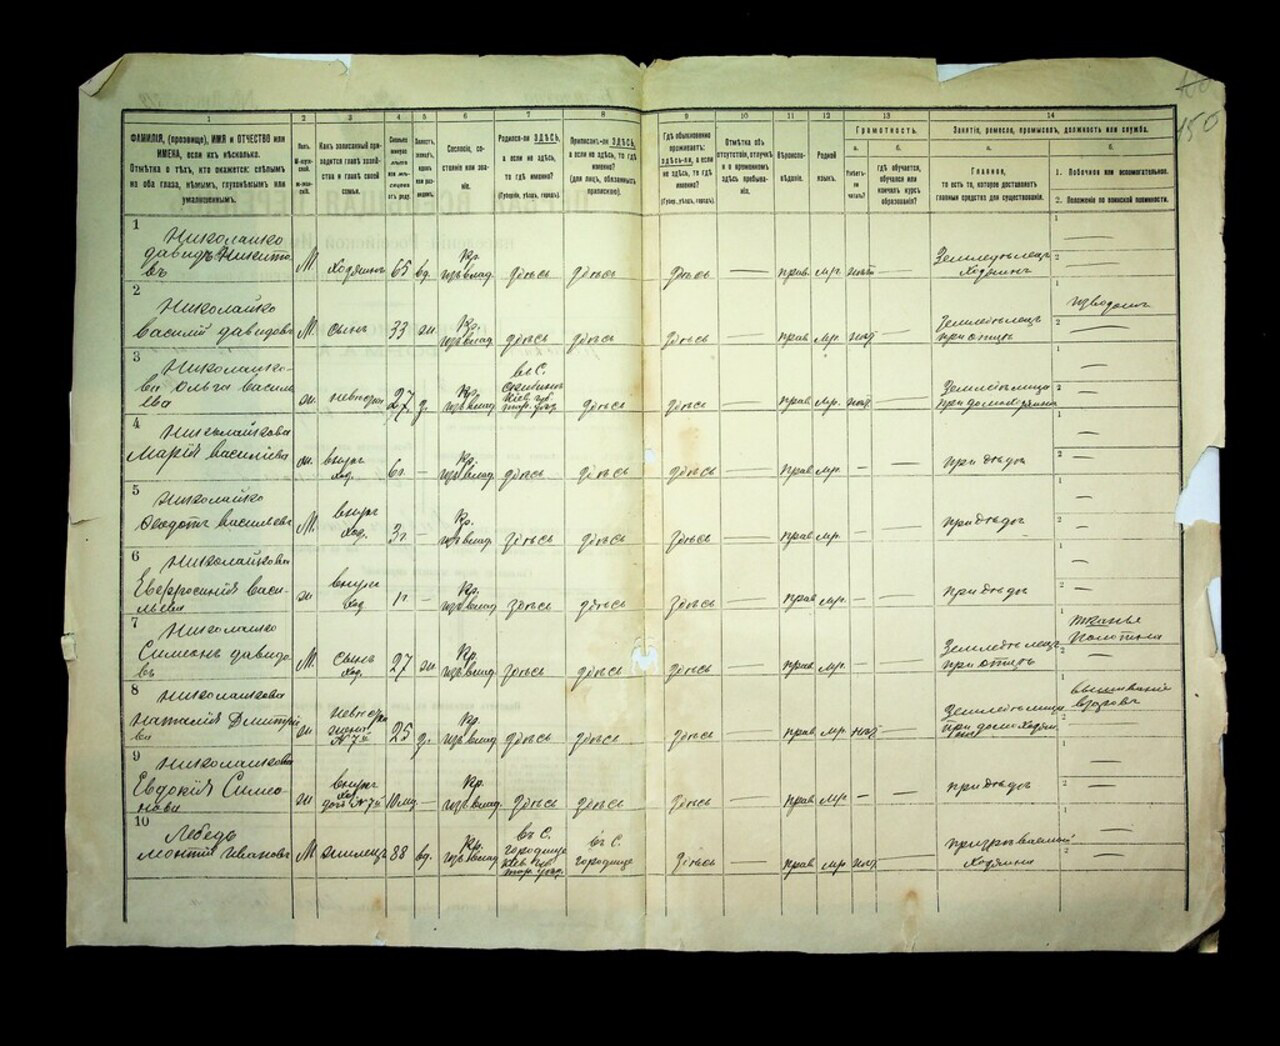 150
1
2
3
4
5
6
7
8
9
10
11
12
13
14
ФАМИЛІЯ, (прозвище), ИМЯ и ОТЧЕСТВО или
ИМЕНА, если ихъ нѣсколько.
Отмѣтка о тѣхъ, кто окажется: слѣпымъ
на оба глаза, нѣмымъ, глухонѣмымъ или
умалишеннымъ.
Полъ.
М-мужской.
Ж-женскій.
Какъ записанный приходится главѣ хозяйства и главѣ своей семьи.
Сколько минуло лѣтъ или мѣсяцевъ отъ роду.
Сословіе, состояніе или званіе.
Родился-ли ЗДѢСЬ,
а если не здѣсь,
то гдѣ именно?
(Губернія, уѣздъ, городъ).
Приписанъ-ли ЗДѢСЬ,
а если не здѣсь, то гдѣ
именно?
(для лицъ, обязанныхъ
припискою).
Гдѣ обыкновенно
проживаетъ:
ЗДѢСЬ-ли, а если
не здѣсь, то гдѣ
именно?
(Губер., уѣздъ, городъ).
Отмѣтка объ
отсутствіи, отлучкѣ
и о временномъ
здѣсь пребываніи.
Вѣроисповѣданіе.
Родной
языкъ.
Грамотность.
а.
Умѣетъ-ли
читать?
б.
гдѣ обучается,
обучался или
кончилъ курсъ
образованія?
Занятіе, ремесло, промыселъ, должность или служба.
а.
Главное,
то есть то, которое доставляетъ
главныя средства для существованія.
б.
1. Побочное или вспомогательное.
2. Положеніе по воинской повинности.
1
Николайко
Давидъ Никитовъ
М хозяинъ 65 вд. Кр. изъ влад. здѣсь здѣсь здѣсь — прав. мр. нѣтъ
Земледѣлецъ
хозяинъ
2
Николайко
Василій Давидовъ
М. сынъ 33 ж. Кр. изъ влад. здѣсь здѣсь здѣсь — прав. мр. нѣтъ —
Земледѣлецъ
при отцѣ
извозомъ
3
Николайкова Ольга Васильева
ж. невѣстка 27 Кр. изъ влад.
въ С.
Кіев. губ.
здѣсь здѣсь — прав. мр. нѣтъ —
4
Николайкова
Марія Васильева
ж. 6 г. — Кр. изъ влад. здѣсь здѣсь здѣсь — прав. мр. — —
при дѣдѣ
5
Николайко
Ѳеодотъ Васильевъ
М. внукъ хоз. 3 г. — Кр. изъ влад. здѣсь здѣсь здѣсь — прав. мр. — —
при дѣдѣ
6
Николайкова
Евфросинія Васильева
ж 1 г — Кр. изъ влад. здѣсь здѣсь здѣсь — прав. мр. — —
при дѣдѣ
7
Николайко
Симеонъ Давидовъ
М. сынъ хоз. 27 ж. Кр. изъ влад. здѣсь здѣсь здѣсь — прав. мр. — —
Земледѣлецъ
при отцѣ
тканье
полотна
8
Николайкова
Наталія Дмитріева
ж невѣстка жена №7й 25 Кр. изъ влад. здѣсь здѣсь здѣсь — прав. мр. нѣтъ —
вышиваніе
9
Николайкова
Евдокія Симеонова
ж 10 мц. — Кр. изъ влад. здѣсь здѣсь здѣсь — прав. мр. — —
при дѣдѣ
10
Лебедь
Монтій Ивановъ
М жилецъ 88 вд. Кр. изъ влад.
въ С.
Городище
Кіев. губ.
въ С.
Городище
здѣсь — прав. мр. нѣтъ —
призрѣваемый
хозяина